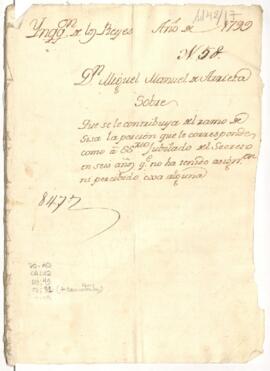 Ynqq.on de los Reyes Año de 1799
1142/17
N 58.
Dn Miguel Manuel de
Sobre
Que se le contribuya del ramo de
Sisa la porción que le corresponde
como à SSrio Jubilado del Secreto
en seis años qe no ha tenido asign.on
ni percibido cosa alguna
8477